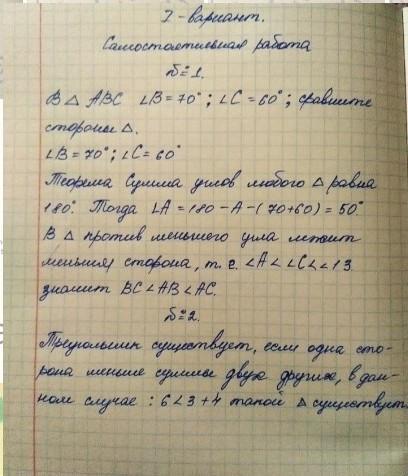 I - вариант.
Самостоятельная работа
№ 1.
В △ ABC ∠B = 70°; ∠C = 60°; сравните
стороны △.
∠B = 70°; ∠C = 60°
Теорема Сумма углов любого △ равна
180°. Тогда ∠A = 180 - A - (70+60) = 50°
В △ против меньшего угла лежит
меньшая сторона, т. е. ∠A < ∠C < ∠B
значит BC < AB < AC.
№ 2.
Треугольник существует, если одна сто-
рона меньше суммы двух других, в дан-
ном случае : 6 < 3 + 4 такой △ существует.